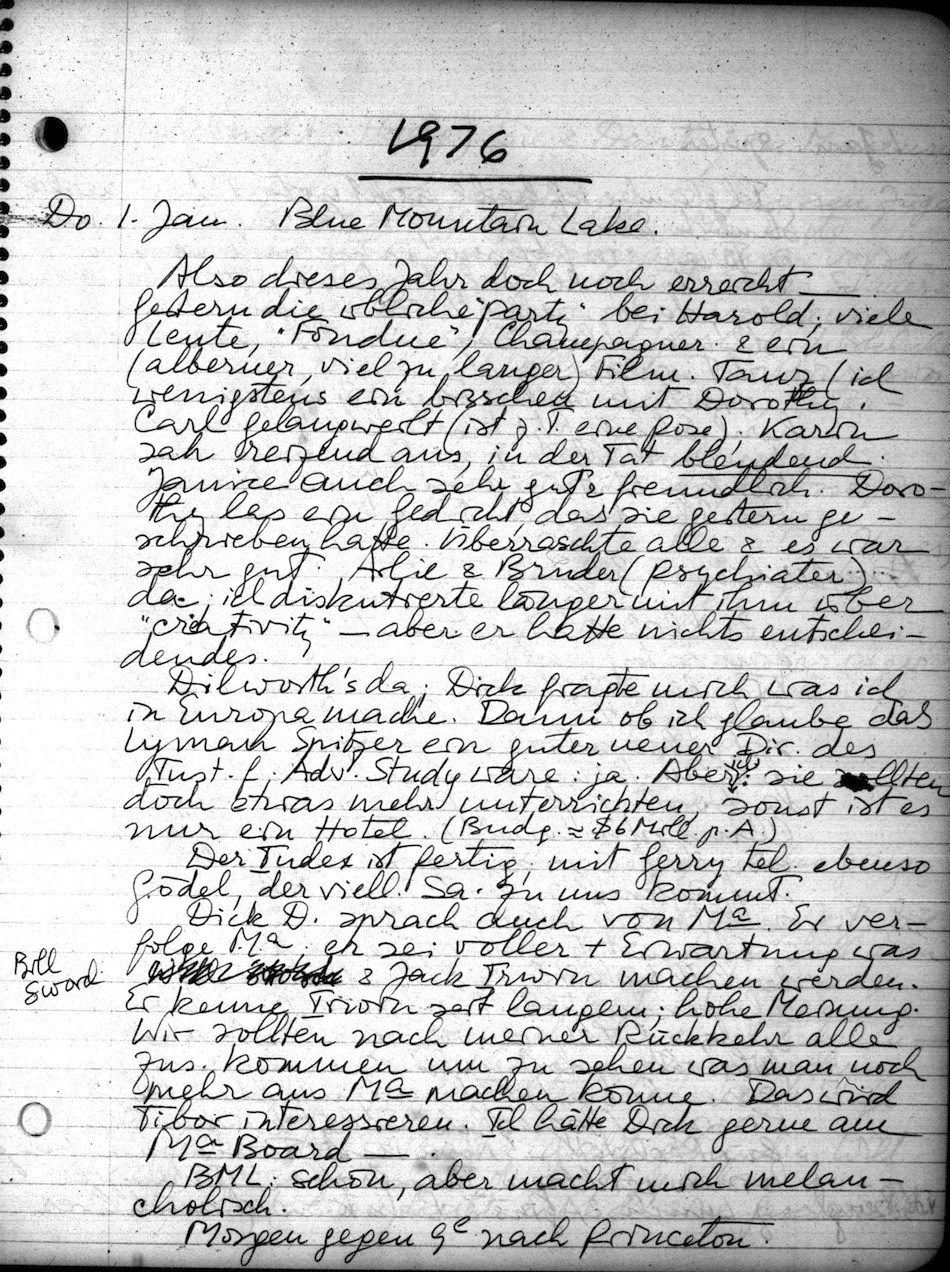 1976
Do. 1. Jan. Blue Mountain Lake.
Also dieses Jahr doch noch erreicht —.
gestern die übliche "party" bei Harold; viele
Leute, "Fondue", Champagner & ein
(alberner, viel zu langer) Film. Tanz (ich
wenigstens ein bisschen mit Dorothy.
Carl gelangweilt (ist z. T. eine Pose), Karin
sah reizend aus, in der Tat blendend.
Janice auch sehr gut & freundlich. Doro-
thy las ein Gedicht, das sie gestern ge-
schrieben hatte. Überraschte alle & es war
sehr gut. & Bruder (Psychiater)
da; ich diskutierte länger mit ihm über
"creativity" — aber er hatte nichts entschei-
dendes.
Dilworth's da; Dick fragte mich was ich
in Europa mache. Dann ob ich glaube das
Lyman Spitzer ein guter neuer Dir. des
Inst. f. Adv. Study wäre: ja. Aber ich: sie sollten
doch etwas mehr unterrichten, sonst ist es
nur ein Hotel. (Budg. ≈ $6 Mill. p. A.)
Der Index ist fertig, mit Gerry tel. ebenso
Gödel, der viell. Sa. zu uns kommt.
Dick D. sprach auch von Ma. Er ver-
folge Ma. er sei voller + Erwartung was
Bill Sword
& Jack Irwin machen werden.
Er kenne Irwin seit langem; hohe Meinung.
Wir sollten nach meiner Rückkehr alle
zus. kommen um zu sehen was man noch
mehr aus Ma machen könne. Das wird
Tibor interessieren. Ich hätte Dick gerne am
Ma Board —.
BML: schön, aber macht mich melan-
cholisch.
Morgen gegen 9e nach Princeton.